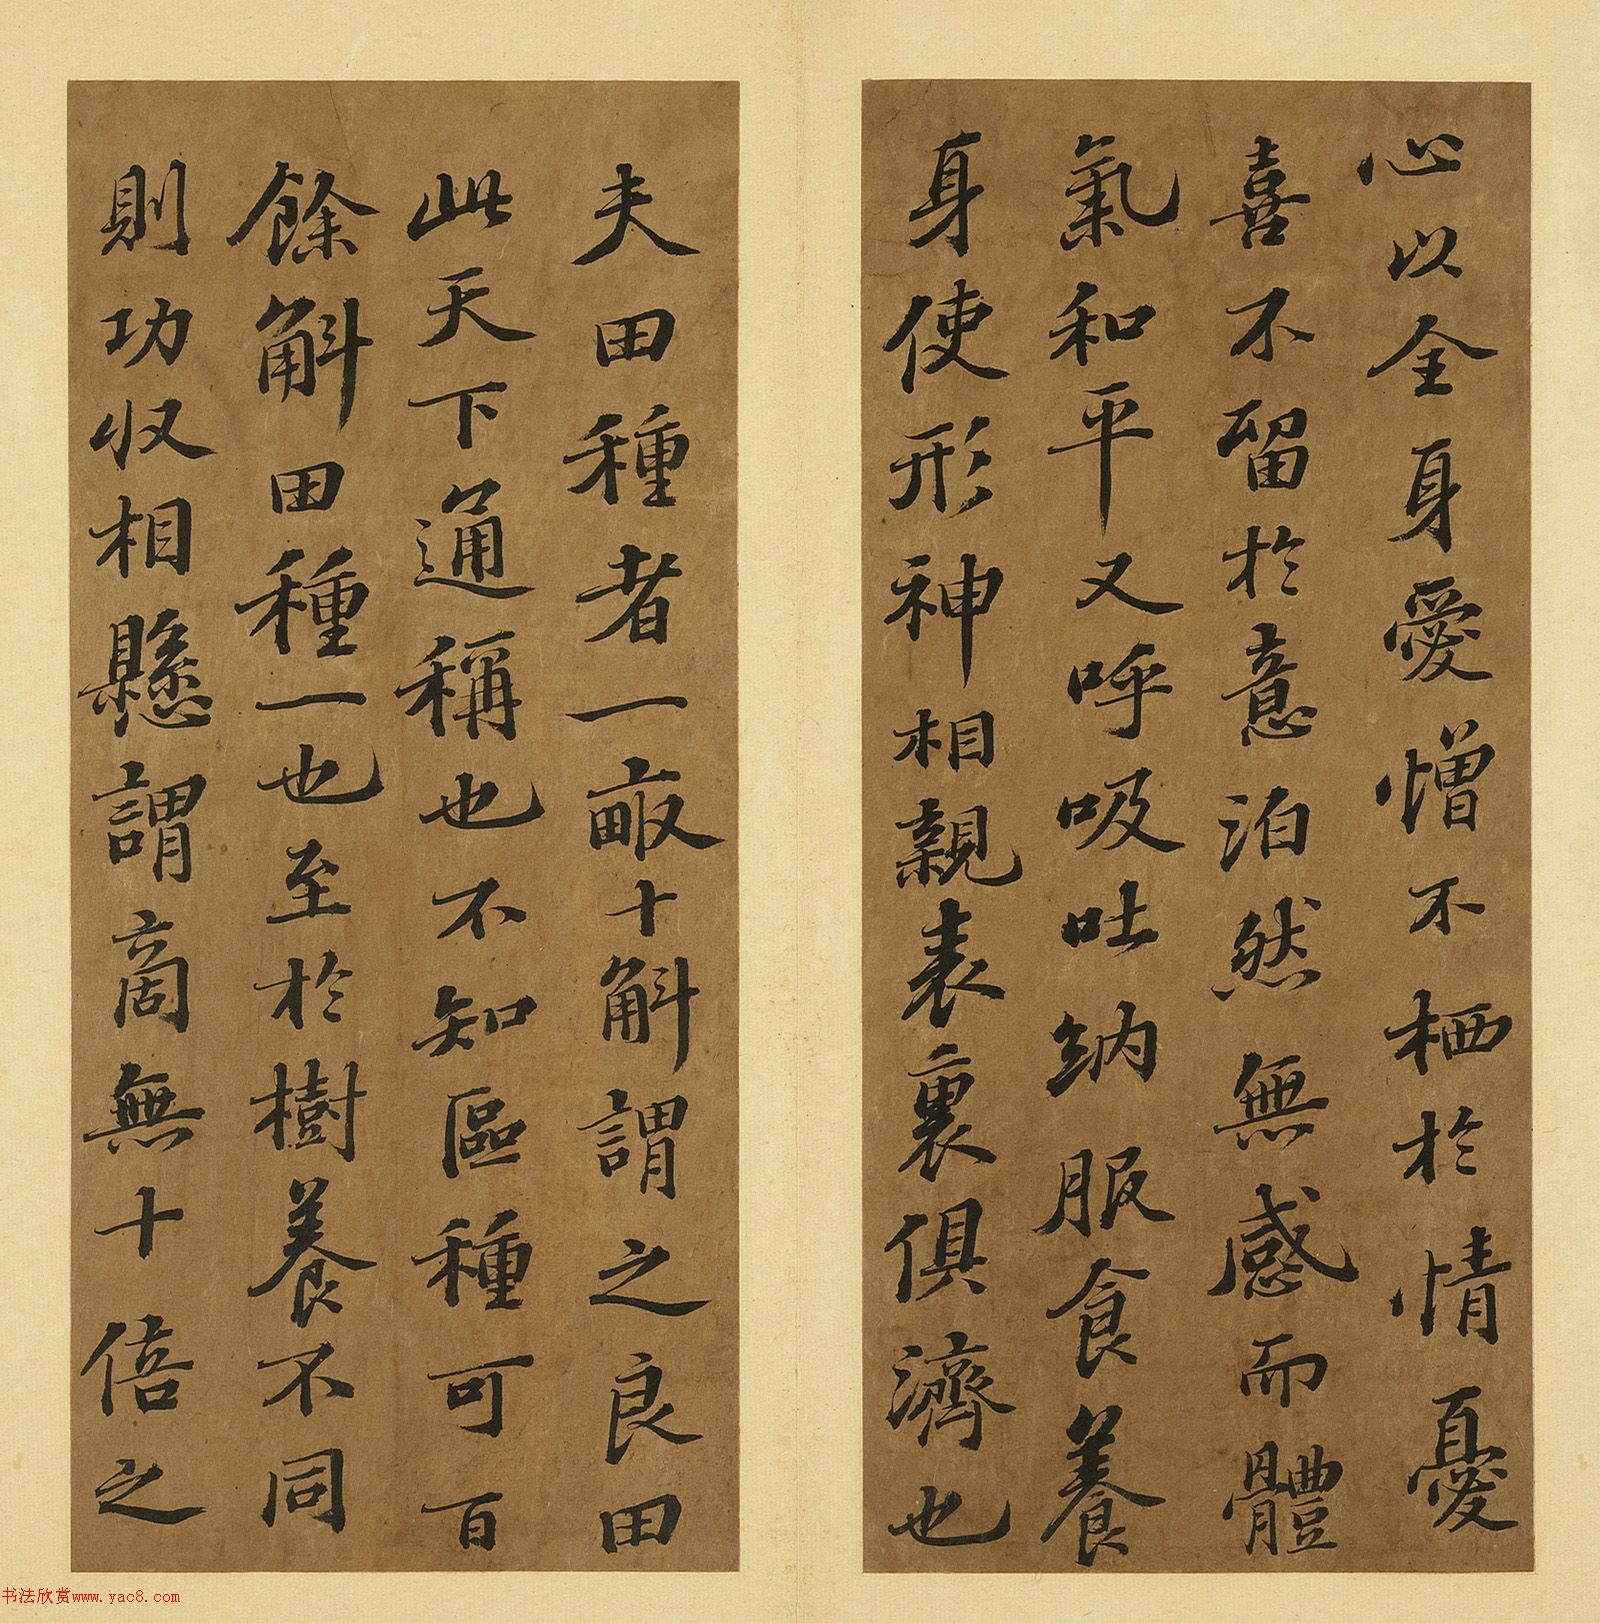 心以全身愛憎不栖於情憂
喜不留於意泊然無感而體
氣和平又呼吸吐納服食養
身使形神相親表裏俱濟也
夫田種者一畝十斛謂之良田
此天下通稱也不知區種可百
餘斛田種一也至於樹養不同
則功收相懸謂商無十倍之
书法欣赏www.yac8.com